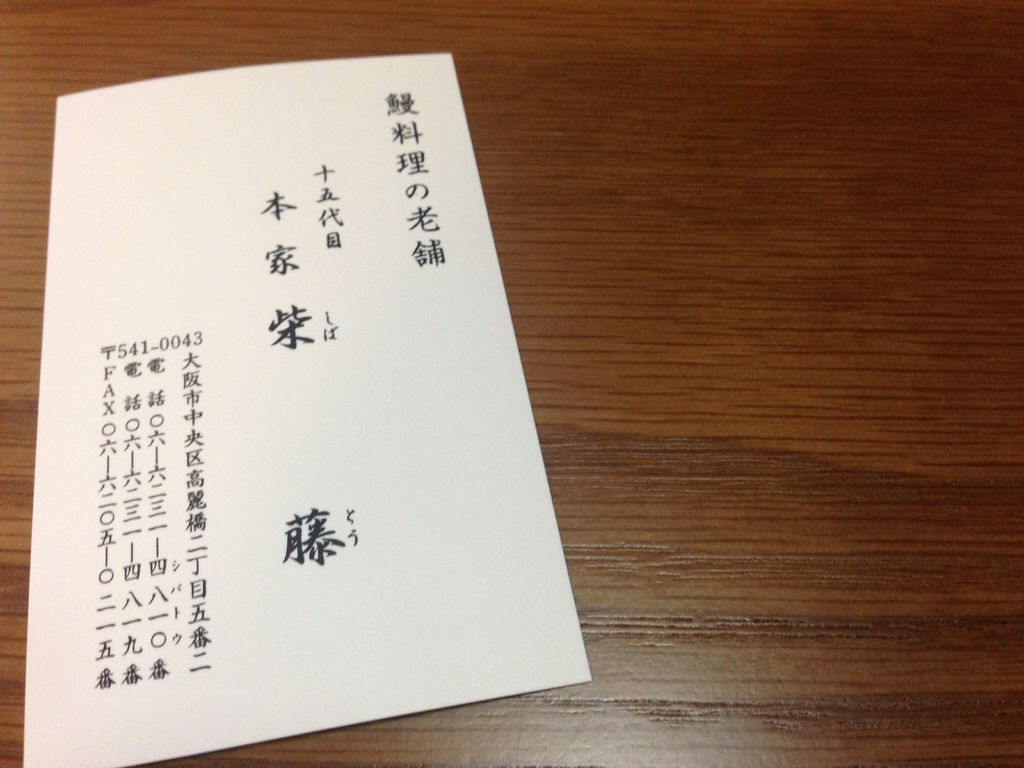 鰻料理の老舗
十五代目
本家柴藤
しばとう
〒541-0043
大阪市中央区高麗橋二丁目五番二
シバトウ
電話〇六―六二三一―四八一〇番
電話〇六―六二三一―四八一九番
FAX〇六―六二〇五―〇二一五番